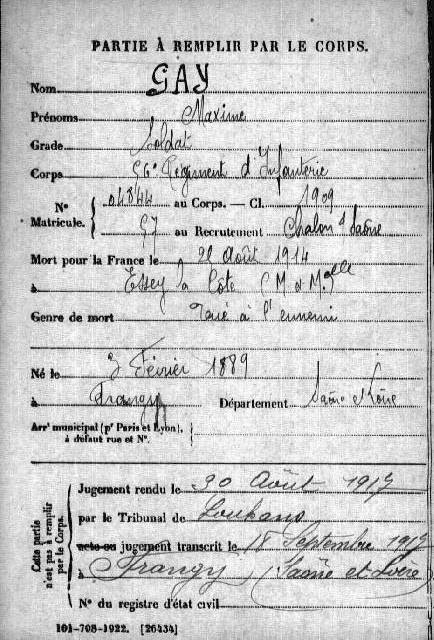 PARTIE À REMPLIR PAR LE CORPS.
Nom GAY
Prénoms Maxime
Grade Soldat
Corps 56e Régiment d'Infanterie
N° Matricule. { 04844 au Corps. — Cl. 1909
57 au Recrutement Chalon s/ Saône
Mort pour la France le Août 1914
à Essey la Côte (M et M.elle
Genre de mort Tué à l'ennemi
Né le 3 Février 1889
à Frangy Département Saône et Loire
Arrt municipal (pr Paris et Lyon), à défaut rue et N°. {
Cette partie n'est pas à remplir par le Corps. { Jugement rendu le 30 Août 1917
par le Tribunal de Louhans
acte ou jugement transcrit le 18 Septembre 1917
à Frangy (Saône et Loire)
N° du registre d'état civil
101-708-1922. [26434]